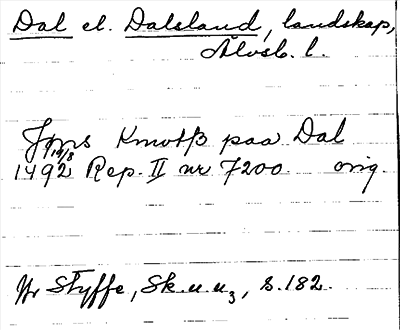 Dal el. Dalsland, landskap,
Älvsb. l.
Jöns Knutß paa Dal
19/8
1492 Rep. II nr 7200 orig.
Jfr Styffe, Sk. u. u3, s. 182.